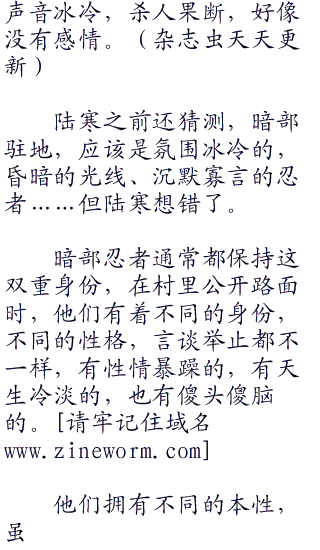 声音冰冷，杀人果断，好像
没有感情。（杂志虫天天更
新）
陆寒之前还猜测，暗部
驻地，应该是氛围冰冷的，
昏暗的光线、沉默寡言的忍
者……但陆寒想错了。
暗部忍者通常都保持这
双重身份，在村里公开路面
时，他们有着不同的身份，
不同的性格，言谈举止都不
一样，有性情暴躁的，有天
生冷淡的，也有傻头傻脑
的。[请牢记住域名
www.zineworm.com]
他们拥有不同的本性，
虽